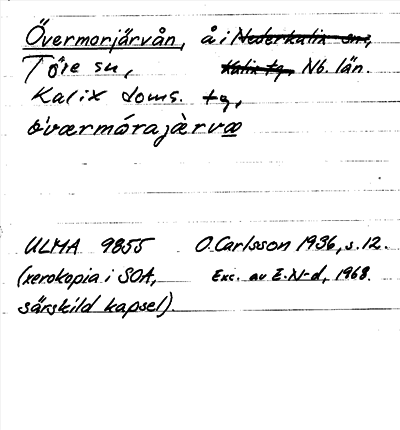 Övermorjärvån, å i Nederkalix sn,
Töre sn, Kalix tg, Nb. län.
Kalix doms. tg,
ö̀værmórajæ̀rvæ
ULMA 9855 O. Carlsson 1936, s. 12.
(xerokopia i SOA, Exc. av E. N-d, 1968.
särskild kapsel).